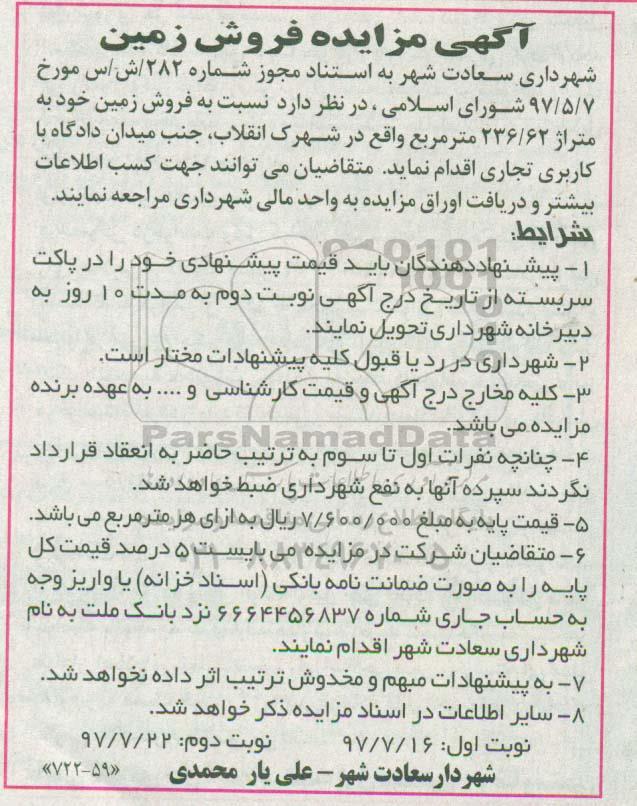 آگهی مزایده فروش زمین
شهرداری سعادت شهر به استناد مجوز شماره ۲۸۲/ش/س مورخ
۹۷/۵/۷ شورای اسلامی، در نظر دارد نسبت به فروش زمین خود به
متراژ ۲۳۶/۶۲ مترمربع واقع در شهرک انقلاب، جنب میدان دادگاه با
کاربری تجاری اقدام نماید. متقاضیان می توانند جهت کسب اطلاعات
بیشتر و دریافت اوراق مزایده به واحد مالی شهرداری مراجعه نمایند.
شرایط:
۱- پیشنهاددهندگان باید قیمت پیشنهادی خود را در پاکت
سربسته از تاریخ درج آگهی نوبت دوم به مدت ۱۰ روز به
دبیرخانه شهرداری تحویل نمایند.
۲- شهرداری در رد یا قبول کلیه پیشنهادات مختار است.
۳- کلیه مخارج درج آگهی و قیمت کارشناسی و .... به عهده برنده
مزایده می باشد.
ParsNamadData
۴- چنانچه نفرات اول تا سوم به ترتیب حاضر به انعقاد قرارداد
نگردند سپرده آنها به نفع شهرداری ضبط خواهد شد.
۵- قیمت پایه به مبلغ ۷/۶۰۰/۰۰۰ ریال به ازای هر مترمربع می باشد.
۶- متقاضیان شرکت در مزایده می بایست ۵ درصد قیمت کل
پایه را به صورت ضمانت نامه بانکی (اسناد خزانه) یا واریز وجه
به حساب جاری شماره ۶۶۶۴۴۵۶۸۳۷ نزد بانک ملت به نام
شهرداری سعادت شهر اقدام نمایند.
۷- به پیشنهادات مبهم و مخدوش ترتیب اثر داده نخواهد شد.
۸- سایر اطلاعات در اسناد مزایده ذکر خواهد شد.
نوبت اول: ۹۷/۷/۱۶ نوبت دوم: ۹۷/۷/۲۲
شهردار سعادت شهر – علی یار محمدی «۷۲۲-۵۹»